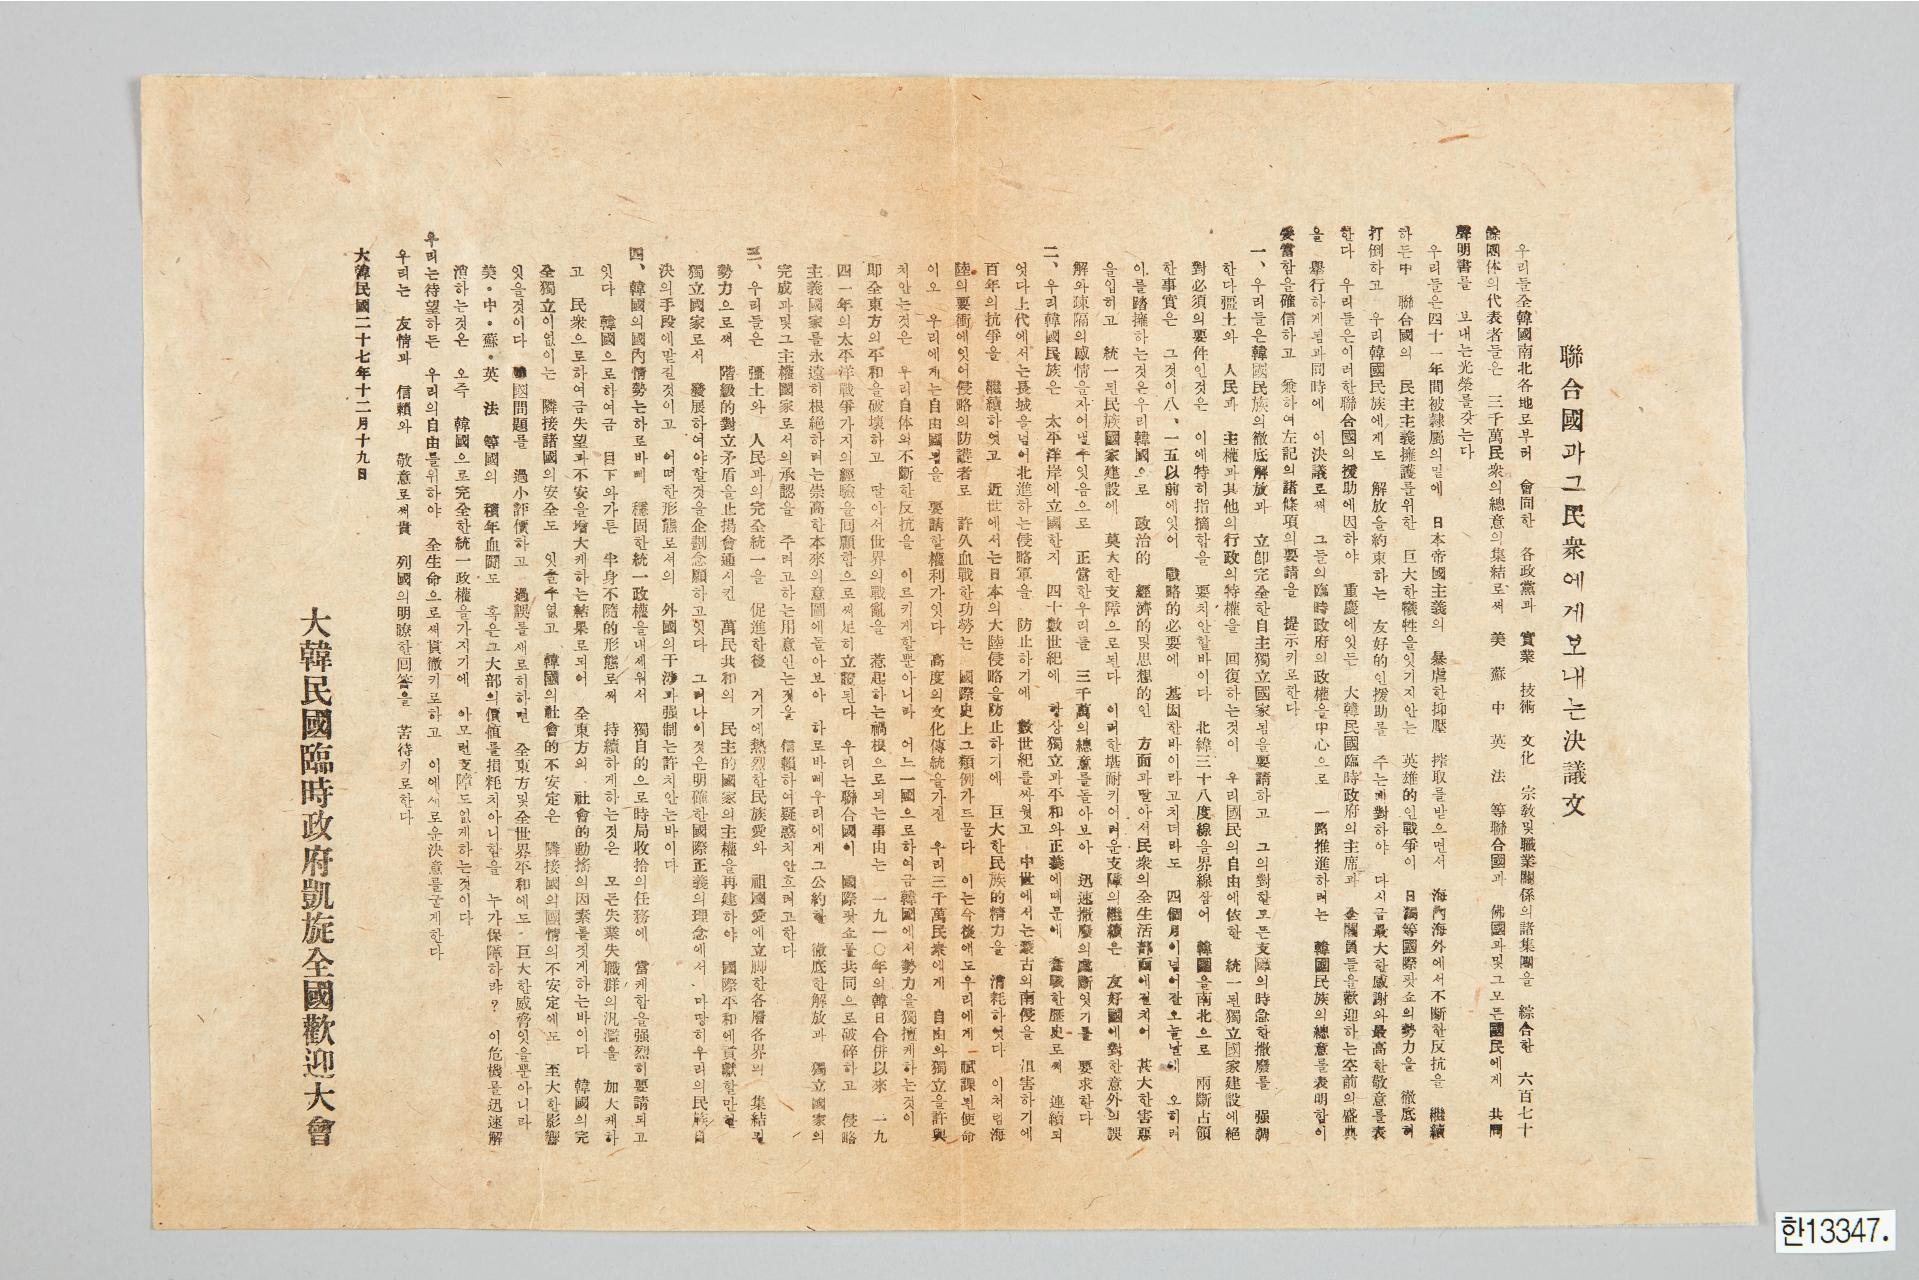 聯合國과그民衆에게보내는決議文
우리들全韓國南北各地로부터 會同한 各政黨과 實業 技術 文化 宗敎및職業關係의諸集團을 綜合한 六百七十
餘團体의代表者들은 三千萬民衆의總意의集結로써 美 蘇 中 英 法 等聯合國과 佛國과및그모든國民에게 共同
聲明書를 보내는光榮를갖는다
우리들은四十一年間被隸屬의밑에 日本帝國主義의 暴虐한抑壓 搾取를받으면서 海內海外에서不斷한反抗을 繼續
하든中 聯合國의 民主主義擁護를위한 巨大한犧牲을잊기지안는 英雄的인戰爭이 日獨等國際팟쇼의勢力을 徹底히
打倒하고 우리韓國民族에게도 解放을約束하는 友好的인援助를 주는데對하야 다시금最大한感謝와最高한敬意를表
한다 우리들은이러한聯合國의援助에因하야 重慶에잇든 大韓民國臨時政府의主席과 全閣員들을歡迎하는空前의盛典
을 擧行하게됨과同時에 이決議로써 그들의臨時政府의政權을中心으로 一路推進하려는 韓國民族의總意를表明함이
妥當함을確信하고 兼하여左記의諸條項의要請을 提示키로한다
一、우리들은韓國民族의徹底解放과 立卽完全한自主獨立國家됨을要請하고 그의對한모든支障의時急한撤廢를 强調
한다疆土와 人民과 主權과其他의行政의特權을 回復하는것이 우리國民의自由에依한 統一된獨立國家建設에絕
對必須의要件인것은 이에特히指摘함을 要치안할바이다 北緯三十八度線을界線삼어 韓國을南北으로 兩斷占領
한事實은 그것이八、一五以前에잇어 戰略的必要에 基因한바이라고치더라도 四個月이넘어간오늘날에 오히려
이를踏擁하는것은우리韓國으로 政治的 經濟的및思想的인 方面과딸아서民衆의全生活部面에걸치어 甚大한害惡
을입히고 統一된民族國家建設에 莫大한支障으로된다 이러한堪耐키어려운支障의繼續은 友好國에對한意外의誤
解와疎隔의感情을자어낼수잇음으로 正當한우리들 三千萬의總意를돌아보아 迅速撤廢의處斷잇기를 要求한다
二、우리韓國民族은 太平洋岸에立國한지 四十數世紀에 항상獨立과平和와正義에때문에 奮戰한歷史로써 連續되
엇다上代에서는長城을넘어北進하는侵略軍을 防止하기에 數世紀를싸웟고 中世에서는蒙古의南侵을 沮害하기에
百年의抗爭을 繼續하엿고 近世에서는日本의大陸侵略을防止하기에 巨大한民族的精力을 消耗하엿다 이처럼海
陸의要衝에잇어侵略의防護者로 許久血戰한功勞는 國際史上그類例가드물다 이는今後에도우리에게 賦課된使命
이오 우리에게는自由國됨을 要請할權利가잇다 高度의文化傳統을가진 우리三千萬民衆에게 自由와獨立을許與
치안는것은 우리自体의不斷한反抗을 이르키게할뿐아니라 어느一國으로하여금韓國에서勢力을獨擅케하는것이
卽全東方의平和을破壞하고 딸아서世界의戰亂을 惹起하는禍根으로되는事由는 一九一〇年의韓日合倂以來 一九
四一年의太平洋戰爭가지의經驗을回顧함으로써足히立證된다 우리는聯合國이 國際팟쇼를共同으로破碎하고 侵略
主義國家를永遠히根絕하려는崇高한本來의意圖에돌아보아 하로바삐우리에게그公約한 徹底한解放과 獨立國家의
完成과및그主權國家로서의承認을 주려고하는用意인는것을 信賴하여疑惑치안흐려고한다
三、우리들은 疆土와 人民과의完全統一을 促進한後 거기에熱烈한民族愛와 祖國愛에立脚한各層各界의 集結된
勢力으로써 階級的對立矛盾을止揚會通시킨 萬民共和의 民主的國家의主權을再建하야 國際平和에貢獻할만한
獨立國家로서 發展하여야할것을企劃念願하고잇다 그러나이것은明確한國際正義의理念에서 마땅히우리의民族自
決의手段에맡길것이고 어떠한形態로서의 外國의干涉과强制는許치안는바이다
四、韓國의國內情勢는하로바삐 穩固한統一政權을내세워서 獨自的으로時局收拾의任務에 當케함을强烈히要請되고
잇다 韓國으로하여금 目下와가튼 半身不隨的形態로써 持續하게하는것은 모든失業失職群의氾濫을 加大케하
고 民衆으로하여금失望과不安을增大케하는結果로되어 全東方의 社會的動搖의因素를짓게하는바이다 韓國의完
全獨立이없이는 隣接諸國의安全도 잇을수없고 韓國의社會的不安定은 隣接國의國情의不安定에도 至大한影響
잇을것이다 聯國問題를 過小評價하고 過誤를새로히하면 全東方및全世界平和에도 巨大한威脅잇을뿐아니라
美·中·蘇·英 法 等國의 積年血鬪도 혹은그大部의價値를損耗치아니함을 누가保障하랴? 이危機를迅速解
消하는것은 오즉 韓國으로完全한統一政權을가지기에 아모런支障도없게하는것이다
우리는待望하든 우리의自由를위하야 全生命으로써貫徹키로하고 이에세로운決意를굳게한다
우리는 友情과 信賴와 敬意로써貴 列國의明瞭한回答을 苦待키로한다
大韓民國二十七年十二月十九日
大韓民國臨時政府凱旋全國歡迎大會
한13347.